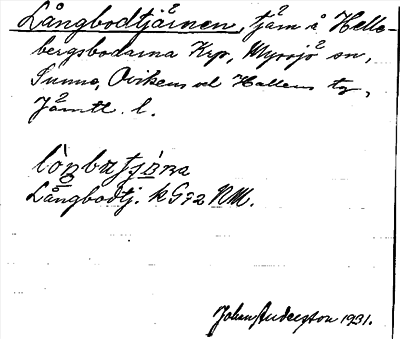 Långbodtjärnen, tjärn å Helle-
bergsbodarna Krp, Myssjö sn,
Sunne, Ovikens ocl Hallens tg,
Jämtl. l.
Långbodtj. k G 92 NM.
Johan Anderzon 1931.